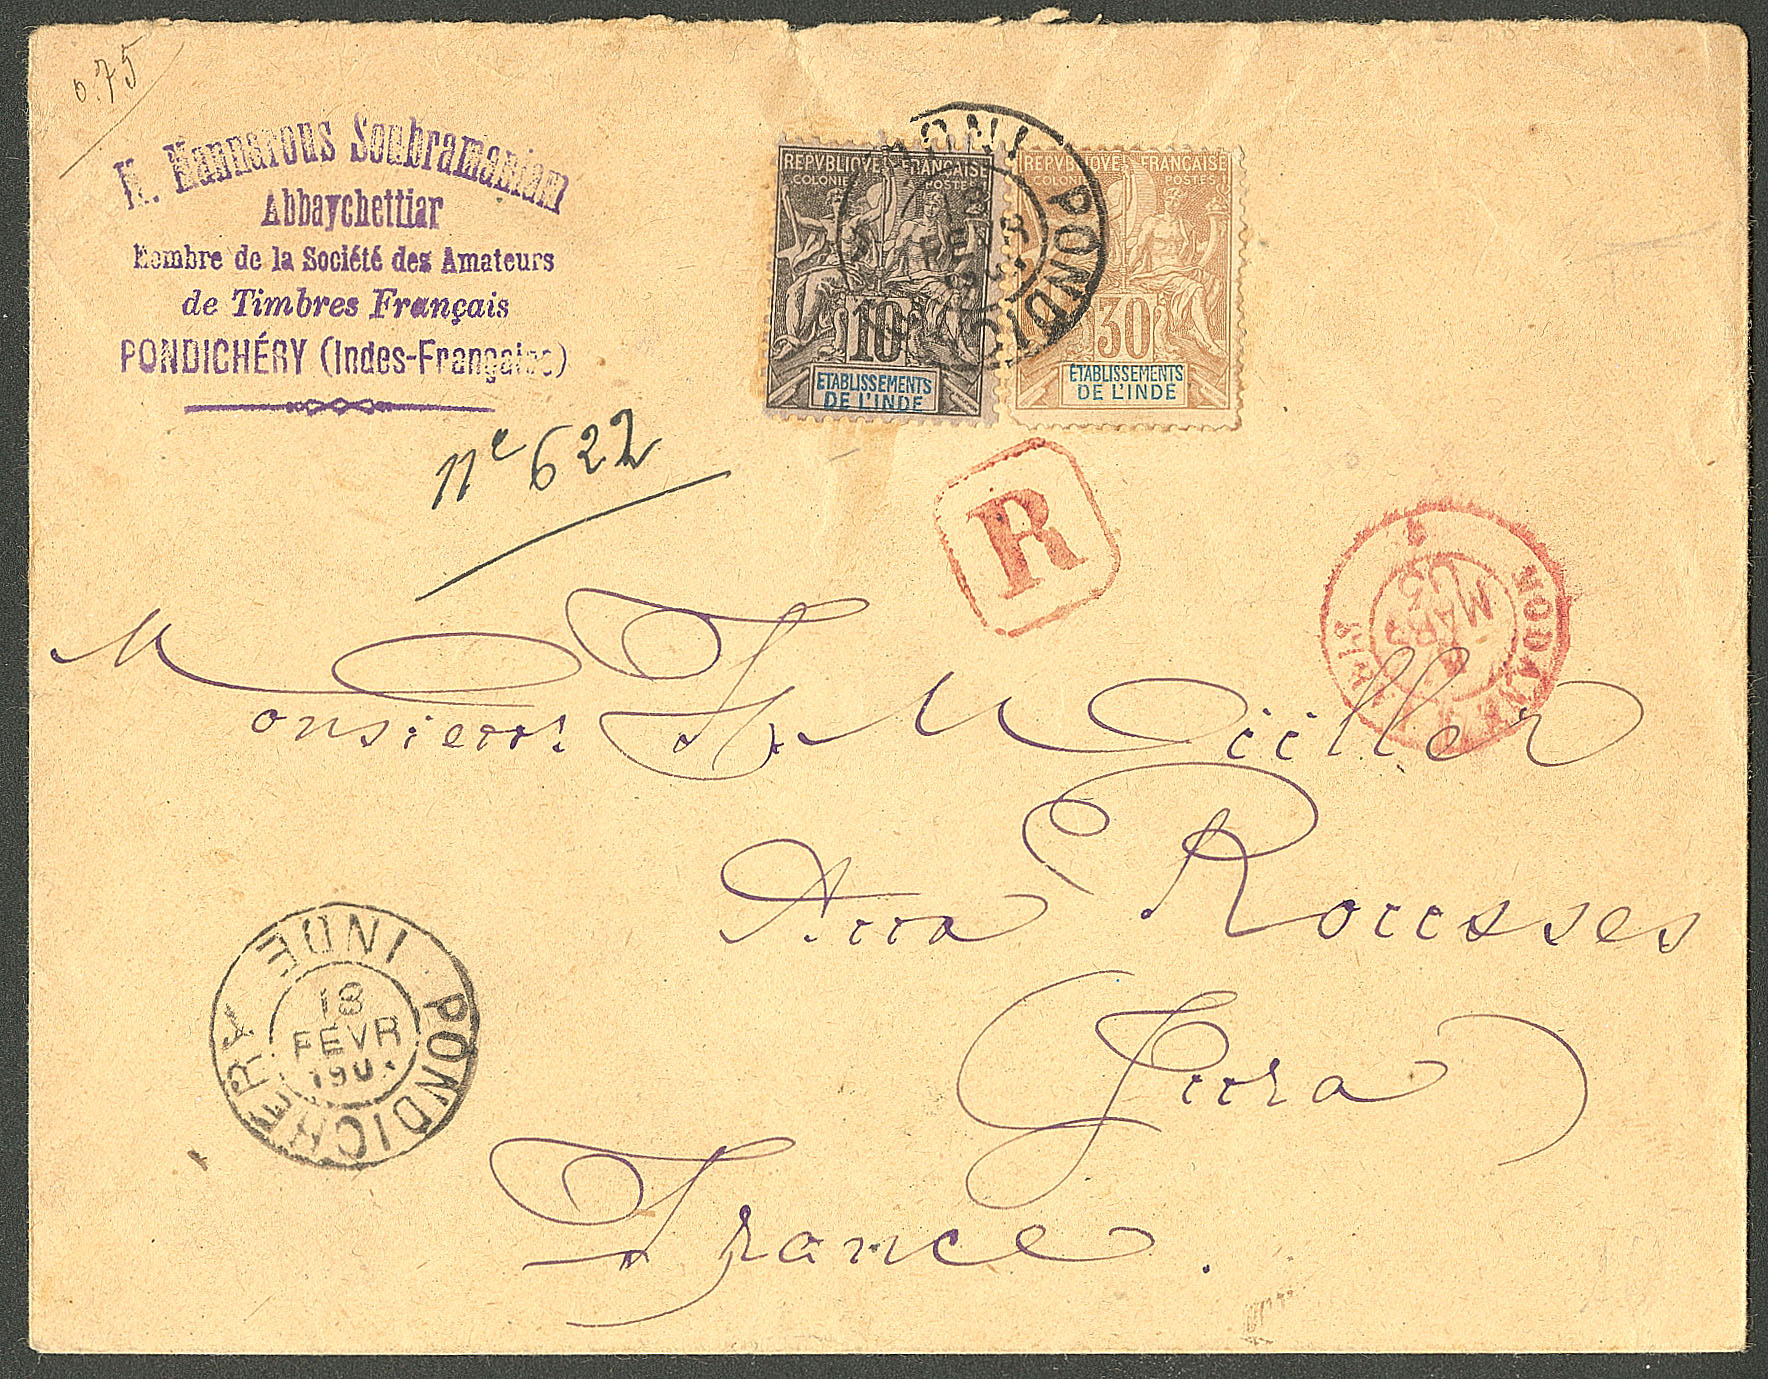 0.75
Mannarous Soubramanian
Abbaychettiar
Membre de la Société des Amateurs
de Timbres Français
PONDICHÉRY (Indes-Françaises)
REPVBLIQVE FRANÇAISE
COLONIES POSTES
10
ÉTABLISSEMENTS
DE L'INDE
REPVBLIQVE FRANÇAISE
COLONIES POSTES
30
ÉTABLISSEMENTS
DE L'INDE
PONDICHERY
nº 622
R
MODANE
MARS
03
Monsieur F. Müller
Aux Rousses
(Jura)
France.
PONDICHERY INDE
18
FEVR